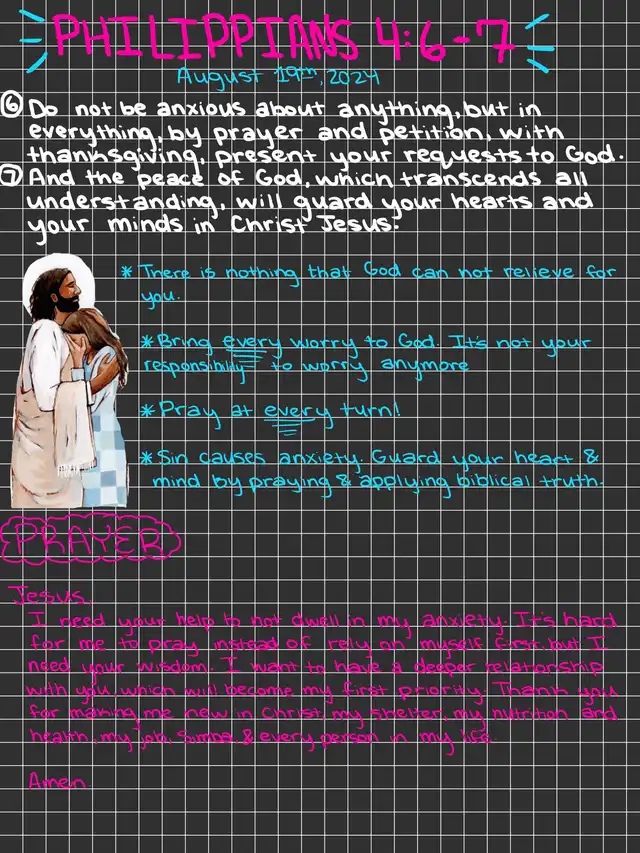 PHILIPPIANS 4:6-7
August 19th, 2024
⑥ Do not be anxious about anything, but in
everything, by prayer and petition, with
thanksgiving, present your requests to God.
⑦ And the peace of God, which transcends all
understanding, will guard your hearts and
your minds in Christ Jesus.
* There is nothing that God can not relieve for
you.
* Bring every worry to God. It's not your
responsibility to worry anymore
* Pray at every turn!
* Sin causes anxiety. Guard your heart &
mind by praying & applying biblical truth.
PRAYER
Jesus,
I need your help to not dwell in my anxiety. It's hard
for me to pray instead of rely on myself first, but I
need your wisdom. I want to have a deeper relationship
with you, which will become my first priority. Thank you
for making me new in Christ, my shelter, my nutrition and
health, my job, Simba & every person in my life.
Amen